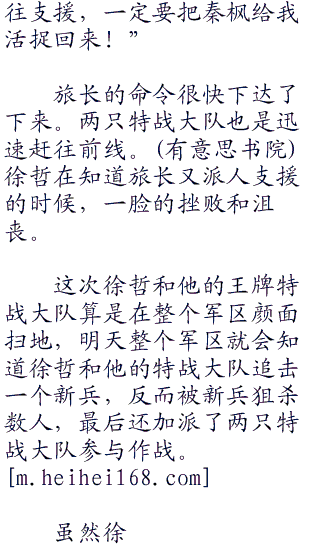 往支援，一定要把秦枫给我
活捉回来！”
旅长的命令很快下达了
下来。两只特战大队也是迅
速赶往前线。(有意思书院)
徐哲在知道旅长又派人支援
的时候，一脸的挫败和沮
丧。
这次徐哲和他的王牌特
战大队算是在整个军区颜面
扫地，明天整个军区就会知
道徐哲和他的特战大队追击
一个新兵，反而被新兵狙杀
数人，最后还加派了两只特
战大队参与作战。
[m.heihei168.com]
虽然徐